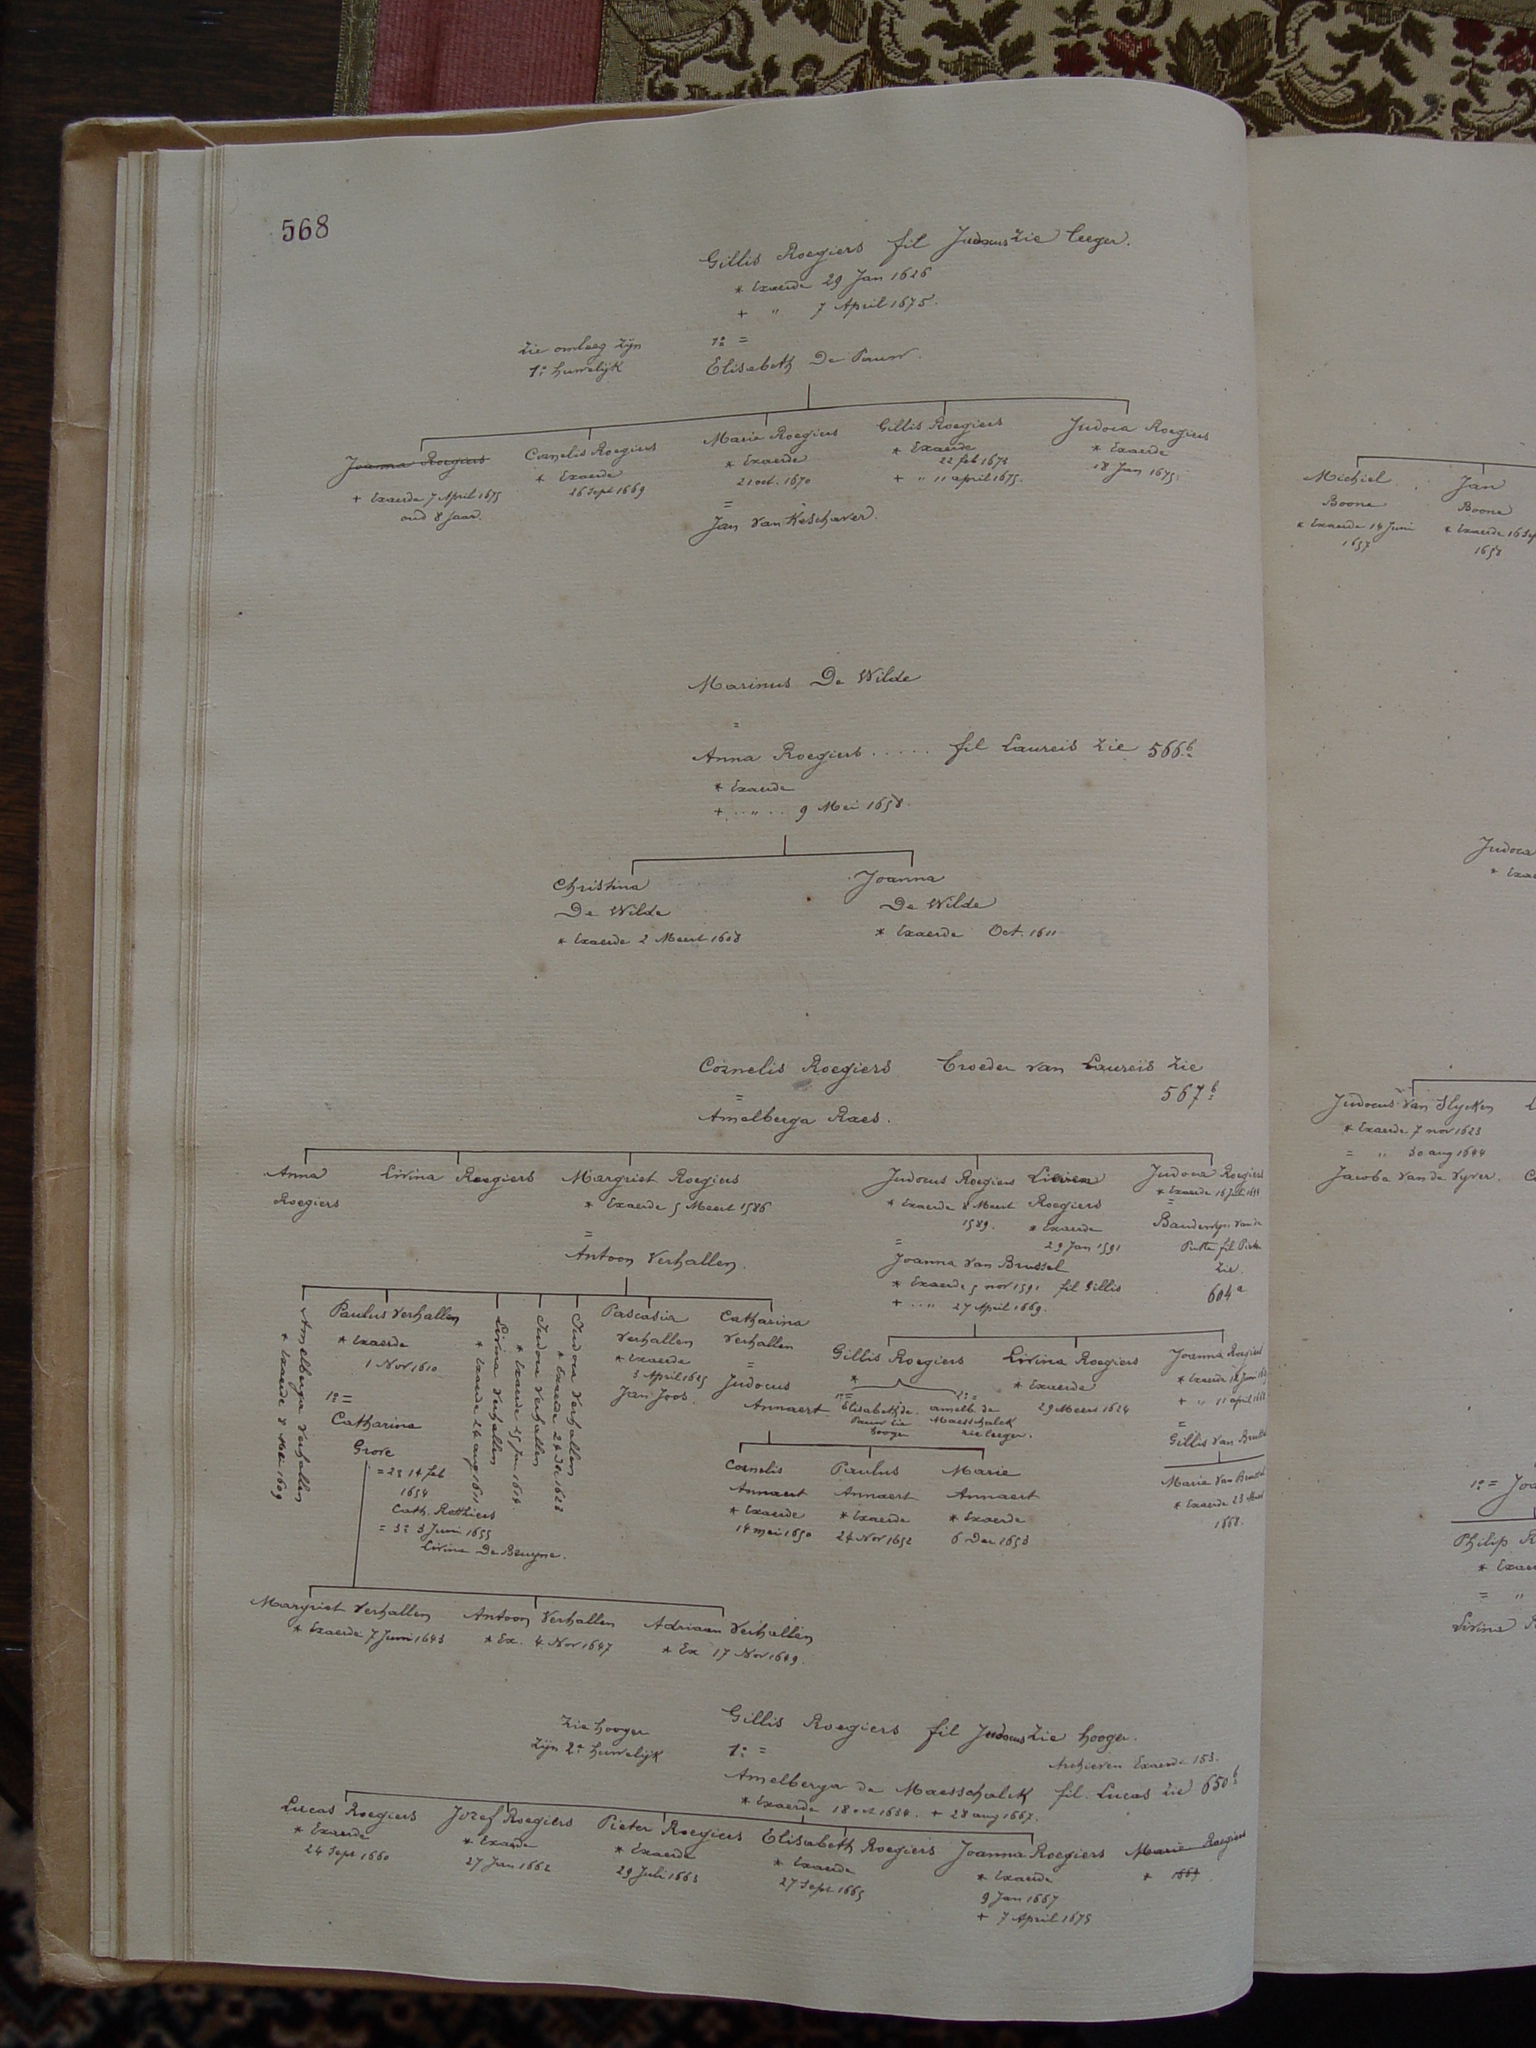 568
Gillis Roegiers fil Judocus zie leeger.
* Exaerde 29 Jan 1626
+ " 7 April 1675.
zie omleeg zijn
1e huwelijk
1e =
Elisabeth De Pauw.
Joanna Roegiers
+ Exaerde 7 April 1675
oud 8 jaar.
Cornelis Roegiers
* Exaerde
26 Sept 1669
Marie Roegiers
* Exaerde
21 oct. 1670
=
Jan Van
Gillis Roegiers
* Exaerde
22 feb 1673
+ " 11 april 1675.
Judoca Roegiers
* Exaerde
18 Jan 1675.
Marinus De Wilde
=
Anna Roegiers ..... fil Laureis zie 566b
* Exaerde
+ .. " .. 9 Mei 1658.
Christina
De Wilde
* Exaerde 2 Meert 1608
Joanna
De Wilde
* Exaerde Oct. 1611
Cornelis Roegiers broeder van Laureis zie
567b
=
Amelberga Raes.
Anna
Roegiers
Livina Roegiers
Margriet Roegiers
* Exaerde 5 Meert 1586
=
Antoon Verhallen.
Judocus Roegiers
* Exaerde 8 Meert
1589.
=
Joanna Van Brussel
* Exaerde 5 nov 1591 fil Gillis
+ .. " 27 April 1669.
Livina
Roegiers
* Exaerde
29 Jan 1591
Judoca Roegiers
* Exaerde
=
Baudewijn Van de
Putte fil Pieter
zie.
604a
Amelberga Verhallen
* Exaerde 8 Mei 1609
Paulus Verhallen
* Exaerde
1 Nov 1610
1e =
Catharina
Grove
= 2e 14 feb
1654
Cath. Rotthiers
= 3e 3 Juni 1655
Livina De Bruyne.
Livina Verhallen
* Exaerde 26 aug 1611
Judoca Verhallen
* Exaerde 25 Jan 1614
Judoca Verhallen
* Exaerde 24 dec 1628
Pascasia
Verhallen
* Exaerde
3 April 1625
Jan Joos.
Catharina
Verhallen
=
Judocus
Annaert
Gillis Roegiers
*
1e =
Elisabeth de
Pauw zie
hooger
2e =
amelb. de
Maesschalck
zie leeger.
Livina Roegiers
* Exaerde
29 Meert 1624
Joanna Roegiers
* Exaerde
+ " 11 april
=
Gillis Van
Marie Van
* Exaerde 23
1668.
Cornelis
Annaert
* Exaerde
14 mei 1650
Paulus
Annaert
* Exaerde
24 Nov 1652
Marie
Annaert
* Exaerde
6 Dec 1653
Margriet Verhallen
* Exaerde 7 Juni 1643
Antoon Verhallen
* Ex. 4 Nov 1647
Adriaan Verhallen
* Ex 17 Nov 1649.
zie hooger
zijn 2e huwelijk
Gillis Roegiers fil Judocus zie hooger.
1e =
Archieven Exaerde 153.
Amelberga de Maesschalck fil. Lucas zie 650b
* Exaerde 18 oct 1634. + 28 aug 1667.
Lucas Roegiers
* Exaerde
24 Sept 1660
Jozef Roegiers
* Exaerde
27 Jan 1662
Pieter Roegiers
* Exaerde
29 Juli 1663
Elisabeth Roegiers
* Exaerde
27 Sept 1665
Joanna Roegiers
* Exaerde
9 Jan 1667
+ 7 April 1675
Marie Roegiers
* 1667
Michiel
Boone
* Exaerde 14 Juni
1657
Jan
Boone
* Exaerde 16 Sep
1658
Judoca
* Exae
Judocus Van Slycken
* Exaerde 7 nov 1623
= " 30 aug 1644
Jacoba Van de Vyver.
1e = Joa
Philip R
* Exae
= "
Livina